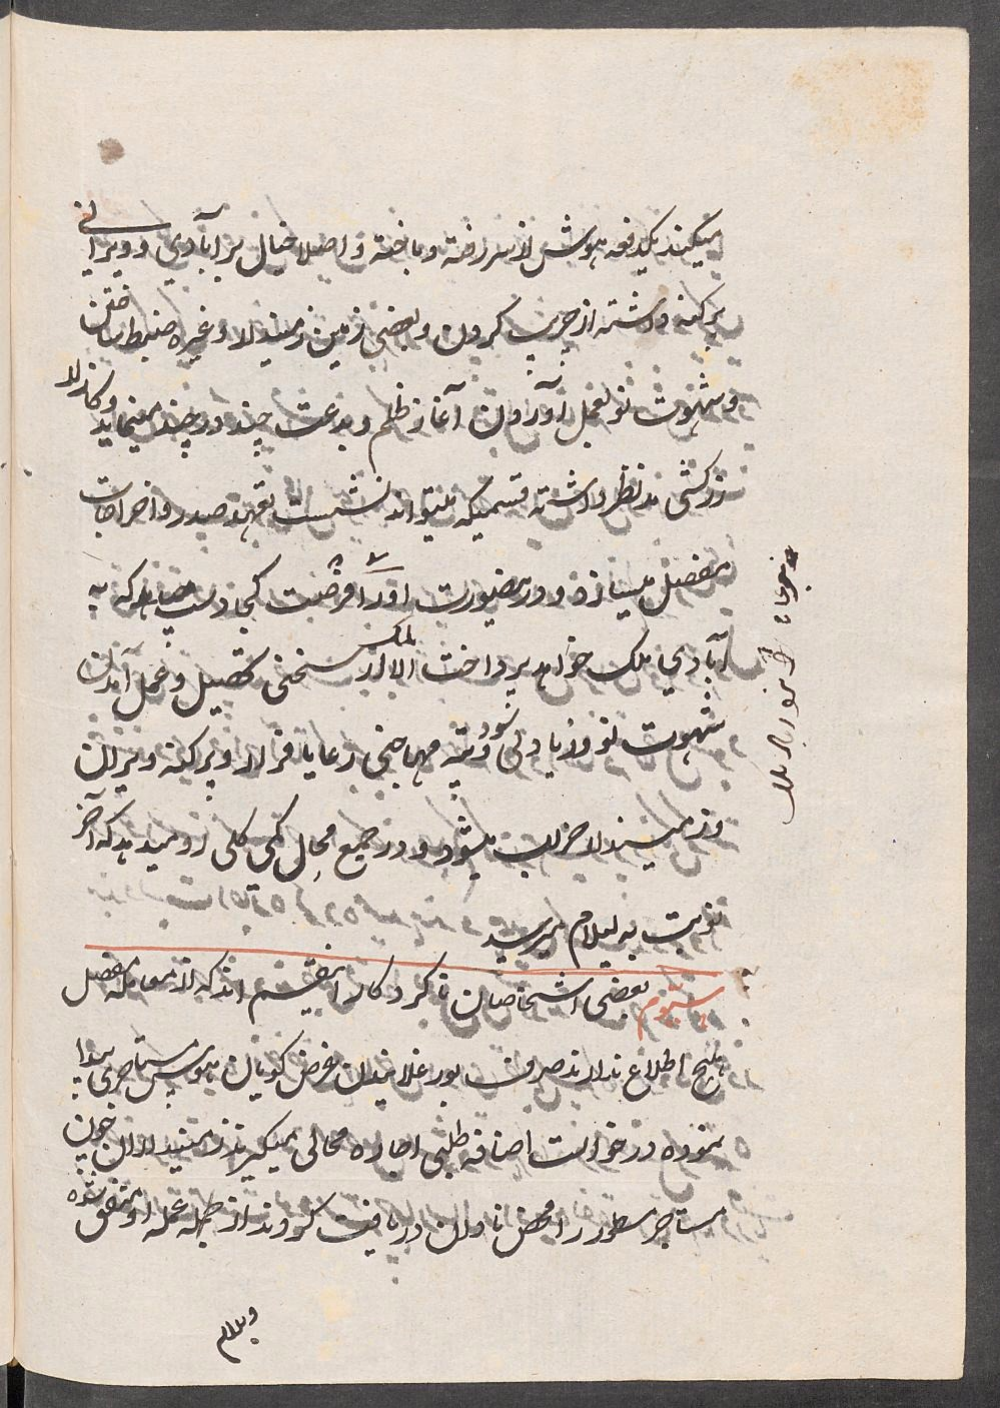 میکیند یکدفه هوش از سر رفته و باخته و اصلا خیال بر آبادی و ویرانی
پرکنه داشته از جریب کردن و بعضی زمین زمیندار و غیره ضبط ساختن
و شهوت نو بعمل آوردن آغاز ظلم و بدعت چند در چند مینماید و کار
زرکشی مد نظر داشته قسمیکه میتواند نشست صدر و اخراجات
مفصل میسازد و درینصورت او را فرصت کجا دست که به
آبادی ملک خواهد پرداخت الا از سختی تحصیل و عمل آمدن
شهوت نو و زیادلی سود مهاجنی رعایا فرار و پرکنه ویران
و زمیندار خراب میشود و در جمیع محال کمی کلی رو میدهد که آخر
نوبت به لیلام میرسد
سیوم بعضی اشخاصان ناکرد کار اینقسم اند که از معامله مفصل
هیچ اطلاع ندارند صرف بورغلانیدن غرض کویان هوس مستاجری پیدا
نموده درخواست اضافه طلبی اجاره محالی میکیرند زمینداران چون
مستاجر مسطور را محض نادان دریافت کردند از جمله عمله او متفق شده